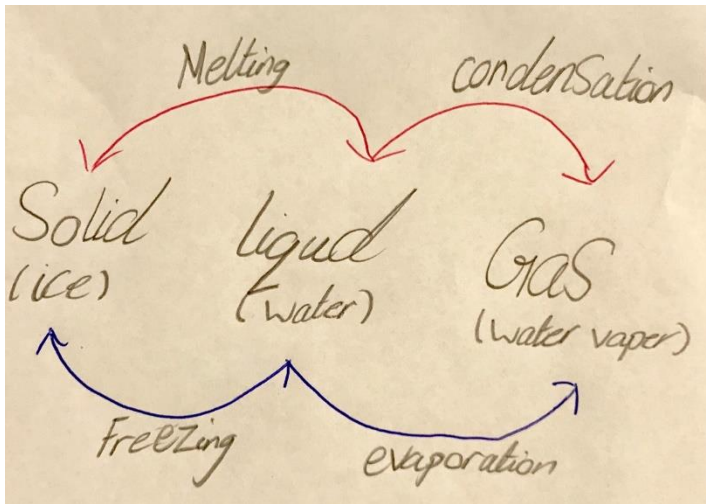 Melting
condensation
Solid
(ice)
liqud
(water)
Gas
(water vaper)
Freezing
evaporation